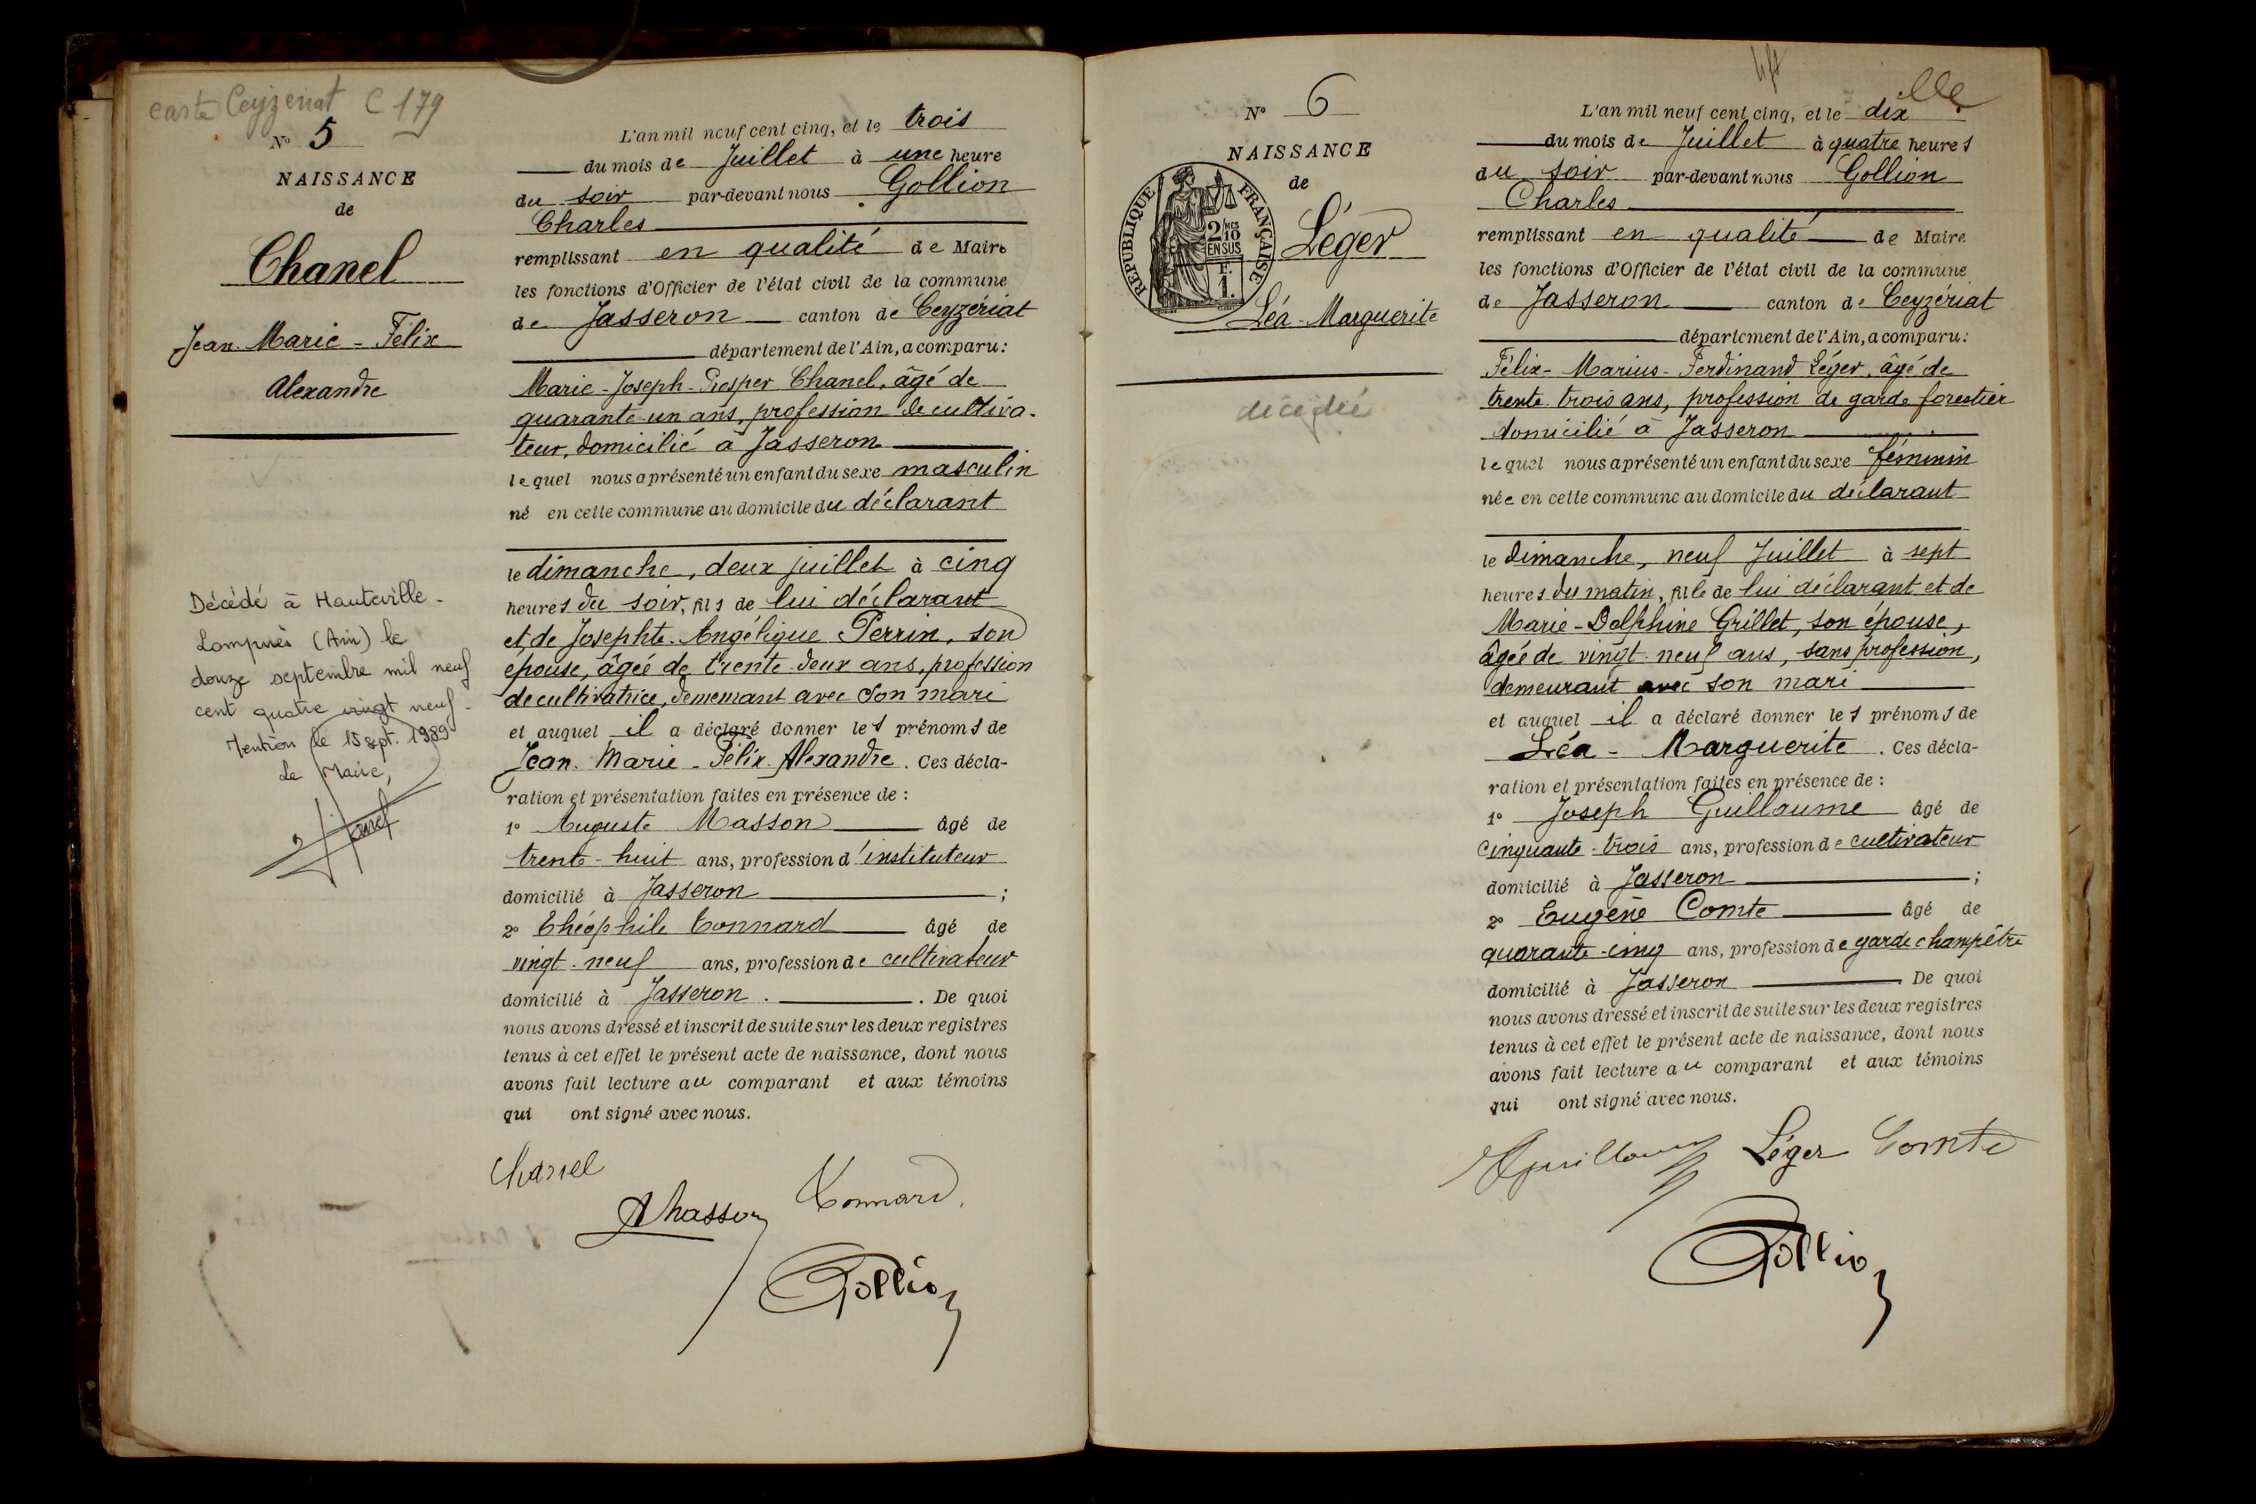 carte Ceyzeriat C 179
N° 5
NAISSANCE
de
Chanel
Jean-Marie-Félix
Alexandre
Décédé à Hauteville-
Lompnès (Ain) le
douze septembre mil neuf
cent quatre vingt neuf.
Mention le 15 sept. 1989
Le Maire,
L'an mil neuf cent cinq, et le trois
du mois de Juillet à une heure
du soir par-devant nous Gollion
Charles
remplissant en qualité de Maire
les fonctions d'Officier de l'état civil de la commune
de Jasseron canton de Ceyzériat
département de l'Ain, a comparu:
Marie-Joseph-Prosper Chanel, âgé de
quarante-un ans, profession de cultiva-
teur, domicilié à Jasseron
lequel nous a présenté un enfant du sexe masculin
né en cette commune au domicile du déclarant
le dimanche, deux juillet à cinq
heures du soir, fils de lui déclarant
et de Josephte-Angélique Perrin, son
épouse, âgée de trente-deux ans, profession
de cultivatrice, demeurant avec son mari
et auquel il a déclaré donner les prénoms de
Jean-Marie-Félix-Alexandre. Ces décla-
ration et présentation faites en présence de :
1° Auguste Masson âgé de
trente-huit ans, profession d'instituteur
domicilié à Jasseron ;
2° Théophile Connard âgé de
vingt-neuf ans, profession de cultivateur
domicilié à Jasseron. . De quoi
nous avons dressé et inscrit de suite sur les deux registres
tenus à cet effet le présent acte de naissance, dont nous
avons fait lecture au comparant et aux témoins
qui ont signé avec nous.
Chanel
AMasson Connard
Gollion
N° 6
NAISSANCE
de
RÉPUBLIQUE FRANÇAISE
2/10 MES
EN SUS
F.
1.
Léger
Léa-Marguerite
décédée
L'an mil neuf cent cinq, et le dix
du mois de Juillet à quatre heures
du soir par-devant nous Gollion
Charles
remplissant en qualité de Maire
les fonctions d'Officier de l'état civil de la commune
de Jasseron canton de Ceyzériat
département de l'Ain, a comparu:
Félix-Marius-Ferdinand Léger, âgé de
trente-trois ans, profession de garde forestier
domicilié à Jasseron
lequel nous a présenté un enfant du sexe féminin
née en cette commune au domicile du déclarant
le dimanche, neuf Juillet à sept
heures du matin, fille de lui déclarant et de
Marie-Delphine Grillet, son épouse,
âgée de vingt-neuf ans, sans profession,
demeurant avec son mari
et auquel il a déclaré donner les prénoms de
Léa-Marguerite. Ces décla-
ration et présentation faites en présence de :
1° Joseph Guillaume âgé de
cinquante-trois ans, profession de cultivateur
domicilié à Jasseron ;
2° Eugène Comte âgé de
quarante-cinq ans, profession de garde champêtre
domicilié à Jasseron De quoi
nous avons dressé et inscrit de suite sur les deux registres
tenus à cet effet le présent acte de naissance, dont nous
avons fait lecture au comparant et aux témoins
qui ont signé avec nous.
Guillaume Léger Comte
Gollion